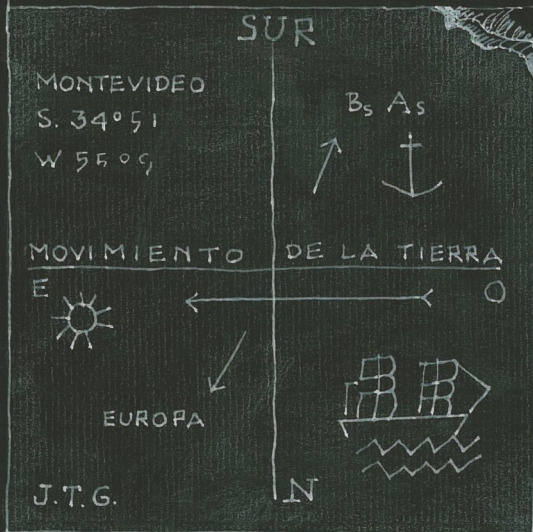 SUR
MONTEVIDEO
S. 34º 51
W 55º 9
Bs As
MOVIMIENTO DE LA TIERRA
E
O
EUROPA
J.T.G.
N